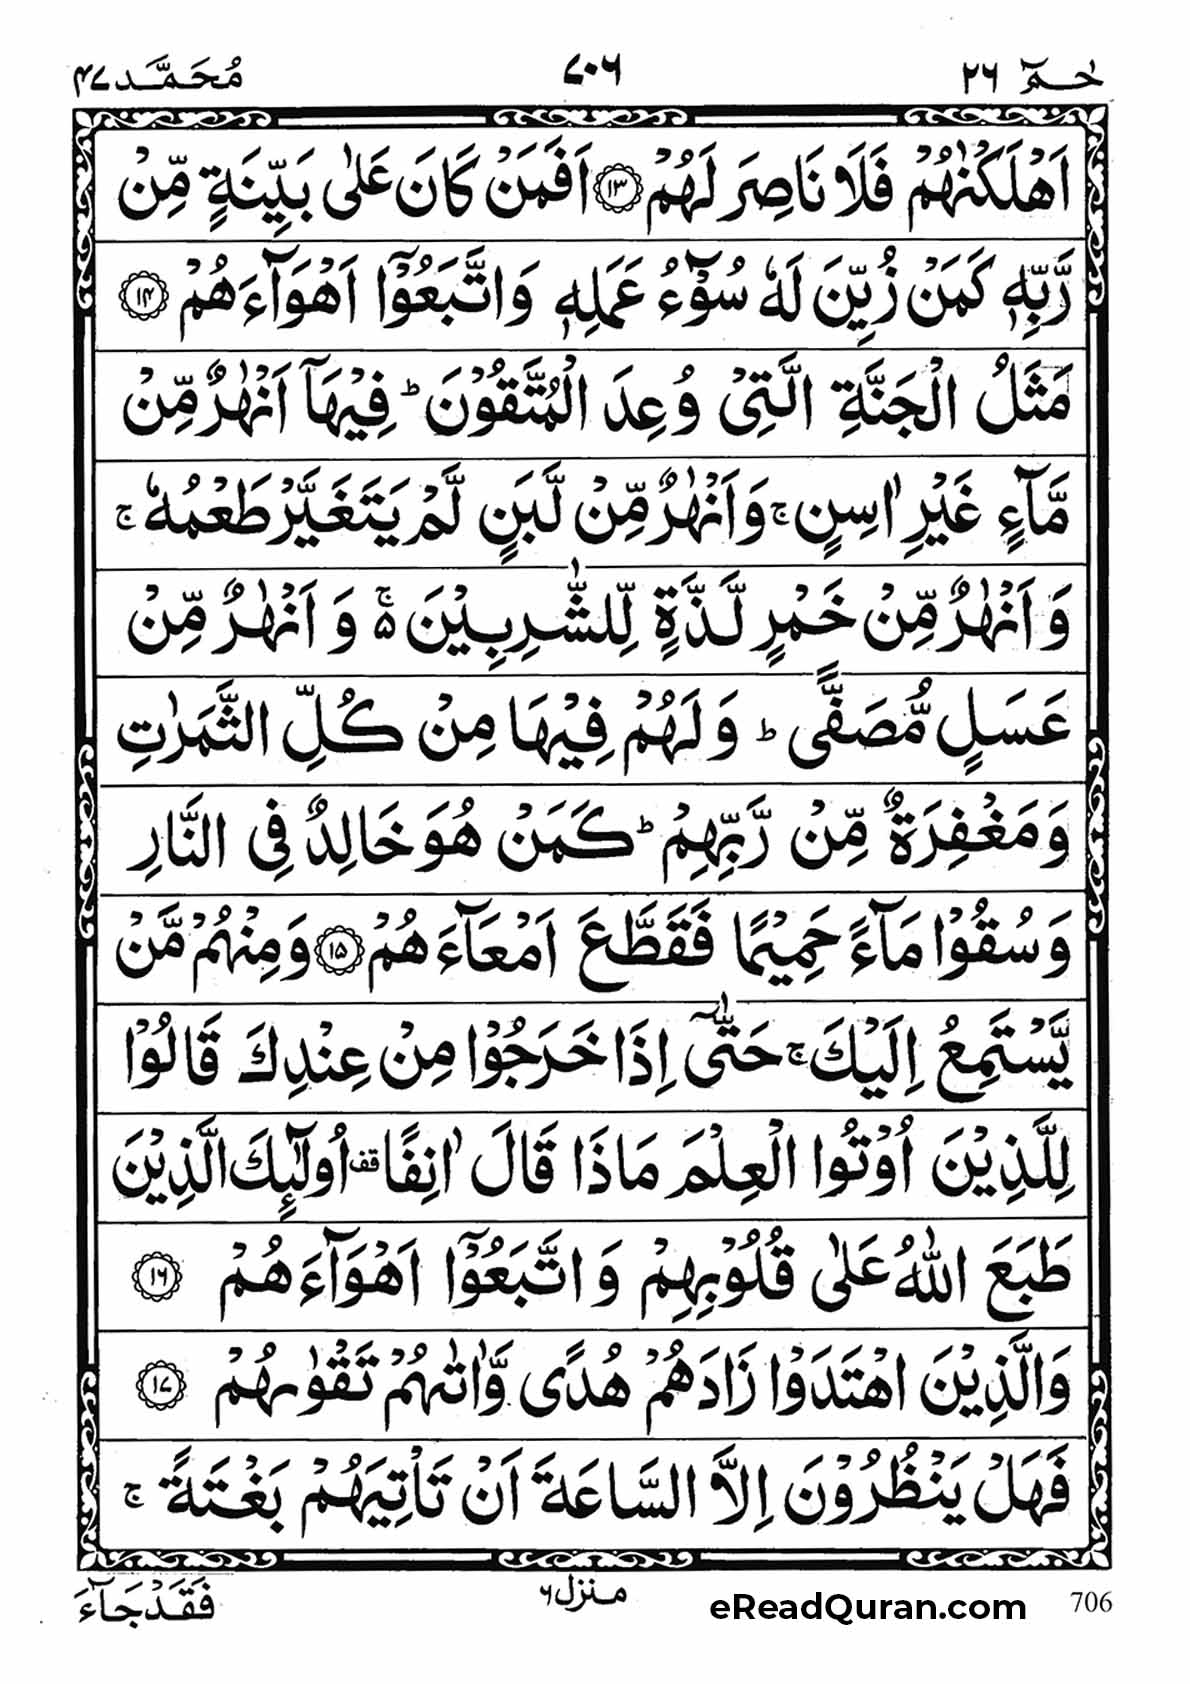 حٰمٓ ٢٦
٧٠٦
مُحَمَّد ٤٧
اَهْلَكْنٰهُمْ فَلَا نَاصِرَ لَهُمْ ﴿۱۳﴾ اَفَمَنْ كَانَ عَلٰى بَيِّنَةٍ مِّنْ
رَّبِّهٖ كَمَنْ زُيِّنَ لَهٗ سُوْٓءُ عَمَلِهٖ وَاتَّبَعُوْٓا اَهْوَآءَهُمْ ﴿۱۴﴾
مَثَلُ الْجَنَّةِ الَّتِىْ وُعِدَ الْمُتَّقُوْنَ ؕ فِيْهَآ اَنْهٰرٌ مِّنْ
مَّآءٍ غَيْرِ اٰسِنٍ ۚ وَاَنْهٰرٌ مِّنْ لَّبَنٍ لَّمْ يَتَغَيَّرْ طَعْمُهٗ ۚ
وَاَنْهٰرٌ مِّنْ خَمْرٍ لَّذَّةٍ لِّلشّٰرِبِيْنَ ۵ۚ وَاَنْهٰرٌ مِّنْ
عَسَلٍ مُّصَفًّى ؕ وَلَهُمْ فِيْهَا مِنْ كُلِّ الثَّمَرٰتِ
وَمَغْفِرَةٌ مِّنْ رَّبِّهِمْ ؕ كَمَنْ هُوَ خَالِدٌ فِى النَّارِ
وَسُقُوْا مَآءً حَمِيْمًا فَقَطَّعَ اَمْعَآءَهُمْ ﴿۱۵﴾ وَمِنْهُمْ مَّنْ
يَّسْتَمِعُ اِلَيْكَ ۚ حَتّٰٓى اِذَا خَرَجُوْا مِنْ عِنْدِكَ قَالُوْا
لِلَّذِيْنَ اُوْتُوا الْعِلْمَ مَاذَا قَالَ اٰنِفًا قف اُولٰٓئِكَ الَّذِيْنَ
طَبَعَ اللّٰهُ عَلٰى قُلُوْبِهِمْ وَاتَّبَعُوْٓا اَهْوَآءَهُمْ ﴿۱۶﴾
وَالَّذِيْنَ اهْتَدَوْا زَادَهُمْ هُدًى وَّاٰتٰهُمْ تَقْوٰىهُمْ ﴿۱۷﴾
فَهَلْ يَنْظُرُوْنَ اِلَّا السَّاعَةَ اَنْ تَاْتِيَهُمْ بَغْتَةً ۚ
فَقَدْ جَآءَ
منزل ٦
eReadQuran.com
706